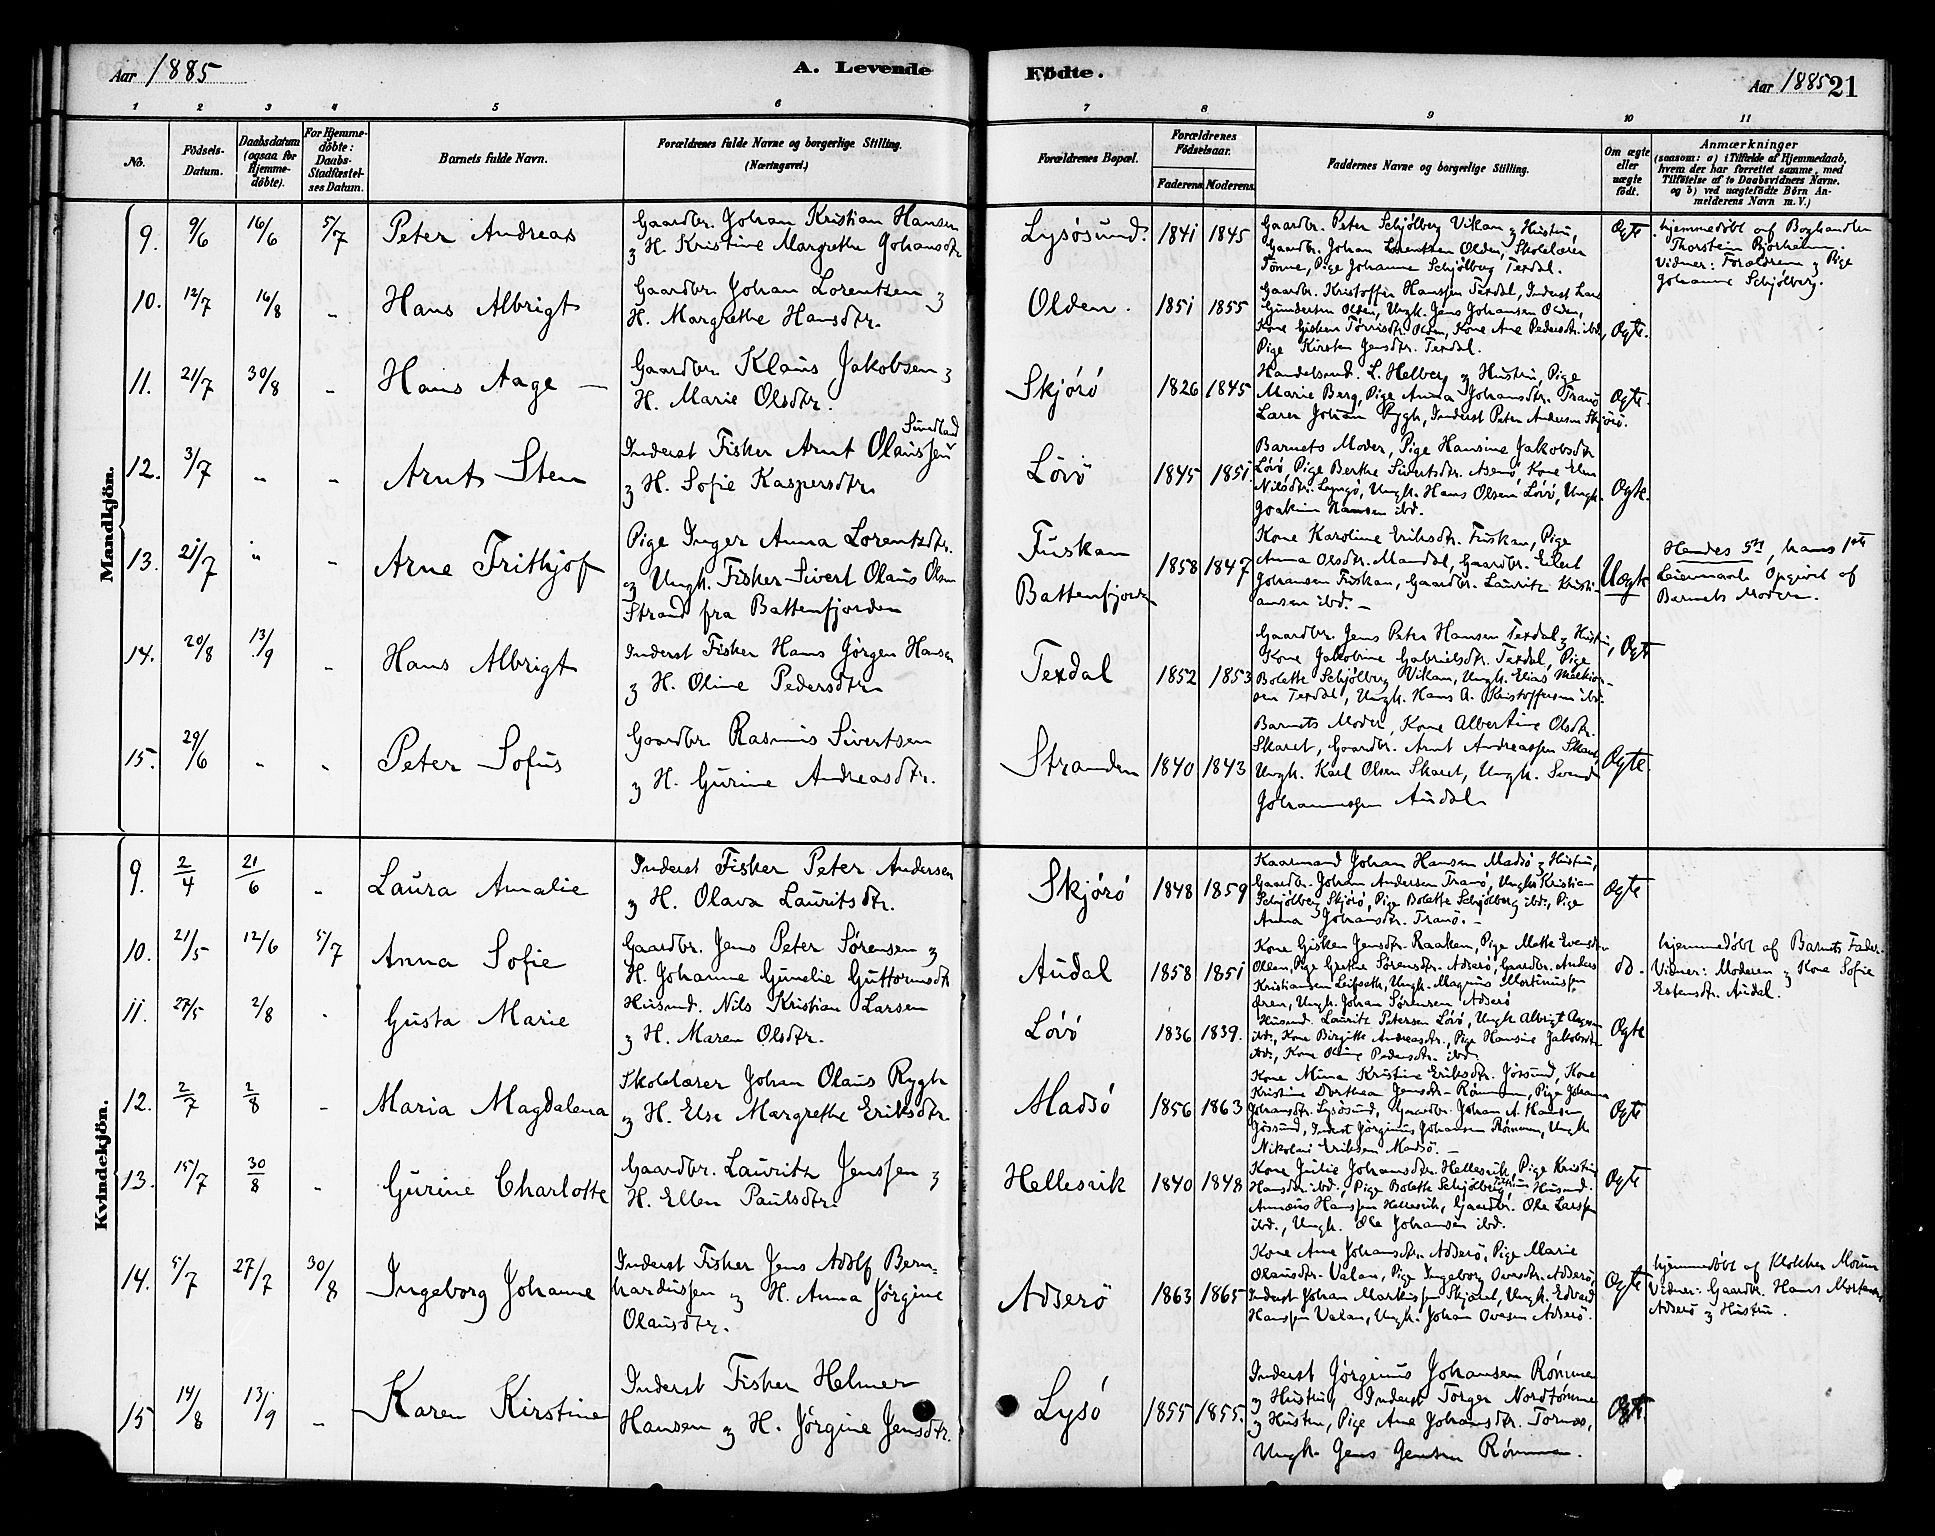 Aar 1885
A. Levende
Födte.
Aar 1885 21
1 2 3 4 5 6 7 8 9 10 11
No.
Födsels-Datum.
Daabsdatum (ogsaa for Hjemme-döbte).
For Hjemme-döbte: Daabs-Stadfæstel-ses Datum.
Barnets fulde Navn.
Forældrenes fulde Navne og borgerlige Stilling.
(Næringsvei.)
Forældrenes Bopæl.
Forældrenes Födselsaar.
Faderens. Moderens.
Faddernes Navne og borgerlige Stilling.
Om ægte eller uægte födt.
Anmærkninger
(saasom: a) i Tilfælde af Hjemmedaab,
hvem der har forrettet samme, med
Tilföielse af to Daabsvidners Navne,
og b) ved uægtefödte Börn An-
melderens Navn m. V.)
Mandkjön.
9. 9/6 16/6 5/7 Peter Andreas
Gaardbr. Johan Kristian Hansen
og H. Kristine Margrethe Johansdtr.
Lysösund. 1841 1845
Gaardbr. Peter Schjølberg Vikan og Hustru,
Gaardbr. Johan Lorentsen Olden, Skolelærer
Tönne, Pige Johanne Schjølberg Texdal.
Ægte
hjemmedøbt af Boghandler
Thorstein Bjorheim.
Vidner: Forældrene og Pige
Johanne Schjølberg.
10. 12/7 16/8 - Hans Albrigt
Gaardbr. Johan Lorentsen og
H. Margrethe Hansdtr.
Olden. 1851 1855
Gaardbr. Kristoffer Hanssen Texdal, Inderst Lars
Gundersen Olden, Ungk. Jens Johansen Olden,
Kone Gisken Tørrisdtr. Olden, Kone Ane Pedersdtr. ibd,
Pige Kirsten Jensdtr. Texdal.
Ægte.
11. 21/7 30/8 - Hans Aage -
Gaardbr. Klaus Jakobsen og
H. Marie Olsdtr.
Skjörö 1826 1845
Handelsmd. L. Helberg og Hustru, Pige
Marie Berg, Pige Anna Johansdtr. Tranö
Lærer Johan Rygh, Inderst Peter Andersen Skjörö.
Ægte.
12. 3/7 " - Arnt Sten
Inderst Fisker Arnt Olaussen Sundland
og H. Sofie Kaspersdtr.
Lövö 1845 1851.
Barnets Moder, Pige Hansine Jakobsdtr
Lövö, Pige Berthe Sivertsdtr. Asenö, Kone Elen
Nilsdtr. Lyngö, Ungk. Hans Olsen Lövö, Ungk.
Joakim Hansen ibd.
Ægte.
13. 21/7 " - Arne Frithjof
Pige Inger Anna Lorentsdtr.
og Ungk. Fisker Sivert Olaus Olsen
Strand fra Battenfjorden
Fuskan
Battenfjorden 1858 1847
Kone Karoline Eriksdtr. Fuskan, Pige
Anna Olsdtr. Mandal, Gaardbr. Edvert
Johansen Fuskan, Gaardbr. Lauritz Kristi-
ansen ibd. -
Uægte
Hendes 5te, hans 1ste
Leiermaal. Opgivet af
Barnets Moder.
14. 20/8 13/9 - Hans Albrigt
Inderst Fisker Hans Jørgen Hansen
og H. Oline Pedersdtr.
Texdal 1852 1853
Gaardbr. Jens Peter Hansen Texdal og Hustru,
Kone Jakobine Gabrielsdtr. Texdal, Pige
Bolette Schjølberg Vikan, Ungk. Elias Melkior-
sen Texdal, Ungk. Hans A. Kristoffersen ibd.
Ægte
15. 29/6 " " Peter Sofus
Gaardbr. Rasmus Sivertsen
og H. Gurine Andreasdtr.
Stranden 1840 1843
Barnets Moder, Kone Albertine Olsdtr.
Skaret, Gaardbr. Arnt Andreassen Skaret,
Ungk. Karl Olsen Skaret, Ungk. Svend
Johannessen Audal
Ægte.
Kvindekjön.
9. 2/4 21/6 - Laura Amalie
Inderst Fisker Peter Andersen
og H. Olava Lauritsdtr.
Skjörö 1848 1859
Kaarmand Johan Hansen Madsö og Hustru,
Gaardbr. Johan Andersen Tranö, Ungk. Kristian
Schjølberg Skjörö, Pige Bolette Schjølberg ibd., Pige
Anna Johansdtr. Tranö. -
Ægte
10. 21/5 12/6 5/7 Anna Sofie
Gaardbr. Jens Peter Sørensen og
H. Johanne Gunelie Guttormsdtr
Audal 1858 1851
Kone Gisken Jensdtr. Raaken, Pige Mette Evensdtr.
Olden, Pige Grethe Sörensdtr. Adserö, Gaardbr. Anders
Kristiansen Leifseth, Ungk. Magnus Mortinussen
Øren, Ungk. Johan Sørensen Adserö
do.
hjemmedøbt af Barnets Fader.
Vidner: Moderen og Kone Sofie
Estensdtr. Audal.
11. 27/5 2/8 - Gusta Marie
Husmd. Nils Kristian Larsen
og H. Maren Olsdtr.
Lövö 1836 1839.
Husmd. Lauritz Petersen Lövö, Ungk. Albrigt Aagesen
ibd., Kone Birgitte Andreasdtr., Pige Hansine Jakobsdtr
ibd., Kone Oline Pedersdtr. ibd.
Ægte
12. 2/7 2/8 - Maria Magdalena
Skolelærer Johan Olaus Rygh
og H. Else Margrethe Eriksdtr.
Madsö 1856 1863
Kone Mina Kristine Eriksdtr. Jössund, Kone
Kristine Dorthea Jensdtr. Römmen, Pige Johanna
Johansdtr. Lysösund, Gaardbr. Johan A. Hansen
Jössund, Inderst Jörginus Johansen Römmen, Ungk.
Nikolai Eriksen Madsö. -
Ægte
13. 15/7 30/8 - Gurine Charlotte
Gaardbr. Lauritz Jenssen og
H. Ellen Paulsdtr.
Hellesvik 1840 1848
Kone Julie Johansdtr. Hellesvik, Pige Kristine
Hansdtr. ibd., Pige Bolette Schjølberg, Husmd.
Annæus Hanssen Hellesvik, Gaardbr. Ole Larssen
ibd., Ungk. Ole Johansen ibd.
Ægte
14. 5/7 27/7 30/8 Ingeborg Johanne
Inderst Fisker Jens Adolf Bern-
hardussen og H. Anna Jørgine
Olausdtr.
Adserö 1863 1865
Kone Ane Johansdtr. Adserö, Pige Marie
Olausdtr. Valan, Pige Ingeborg Ovesdtr. Adserö,
Inderst Johan Markussen Skjöret, Ungk. Edvard
Hanssen Valan, Ungk. Johan Ovesen Adserö.
Ægte
hjemmedøbt af Klokker Morum
Vidner: Gaardbr. Hans Mortensen
Adserö og Hustru.
15 14/8 13/9 - Karen Kirstine
Inderst Fisker Helmer
Hansen og H. Jørgine Jensdtr.
Lysö 1855 1855.
Inderst Jørginus Johansen Römmen
og Hustru, Inderst Torger Nordtömme
og Hustru, Pige Ane Johansdtr. Tornes,
Ungk. Jens Jensen Römmen.
Ægte.